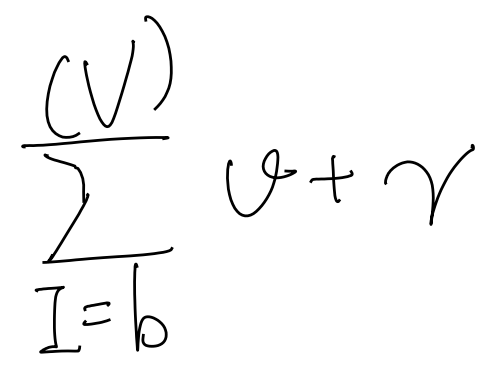 \sum_{I=b}^{(V)} \vartheta + \gamma